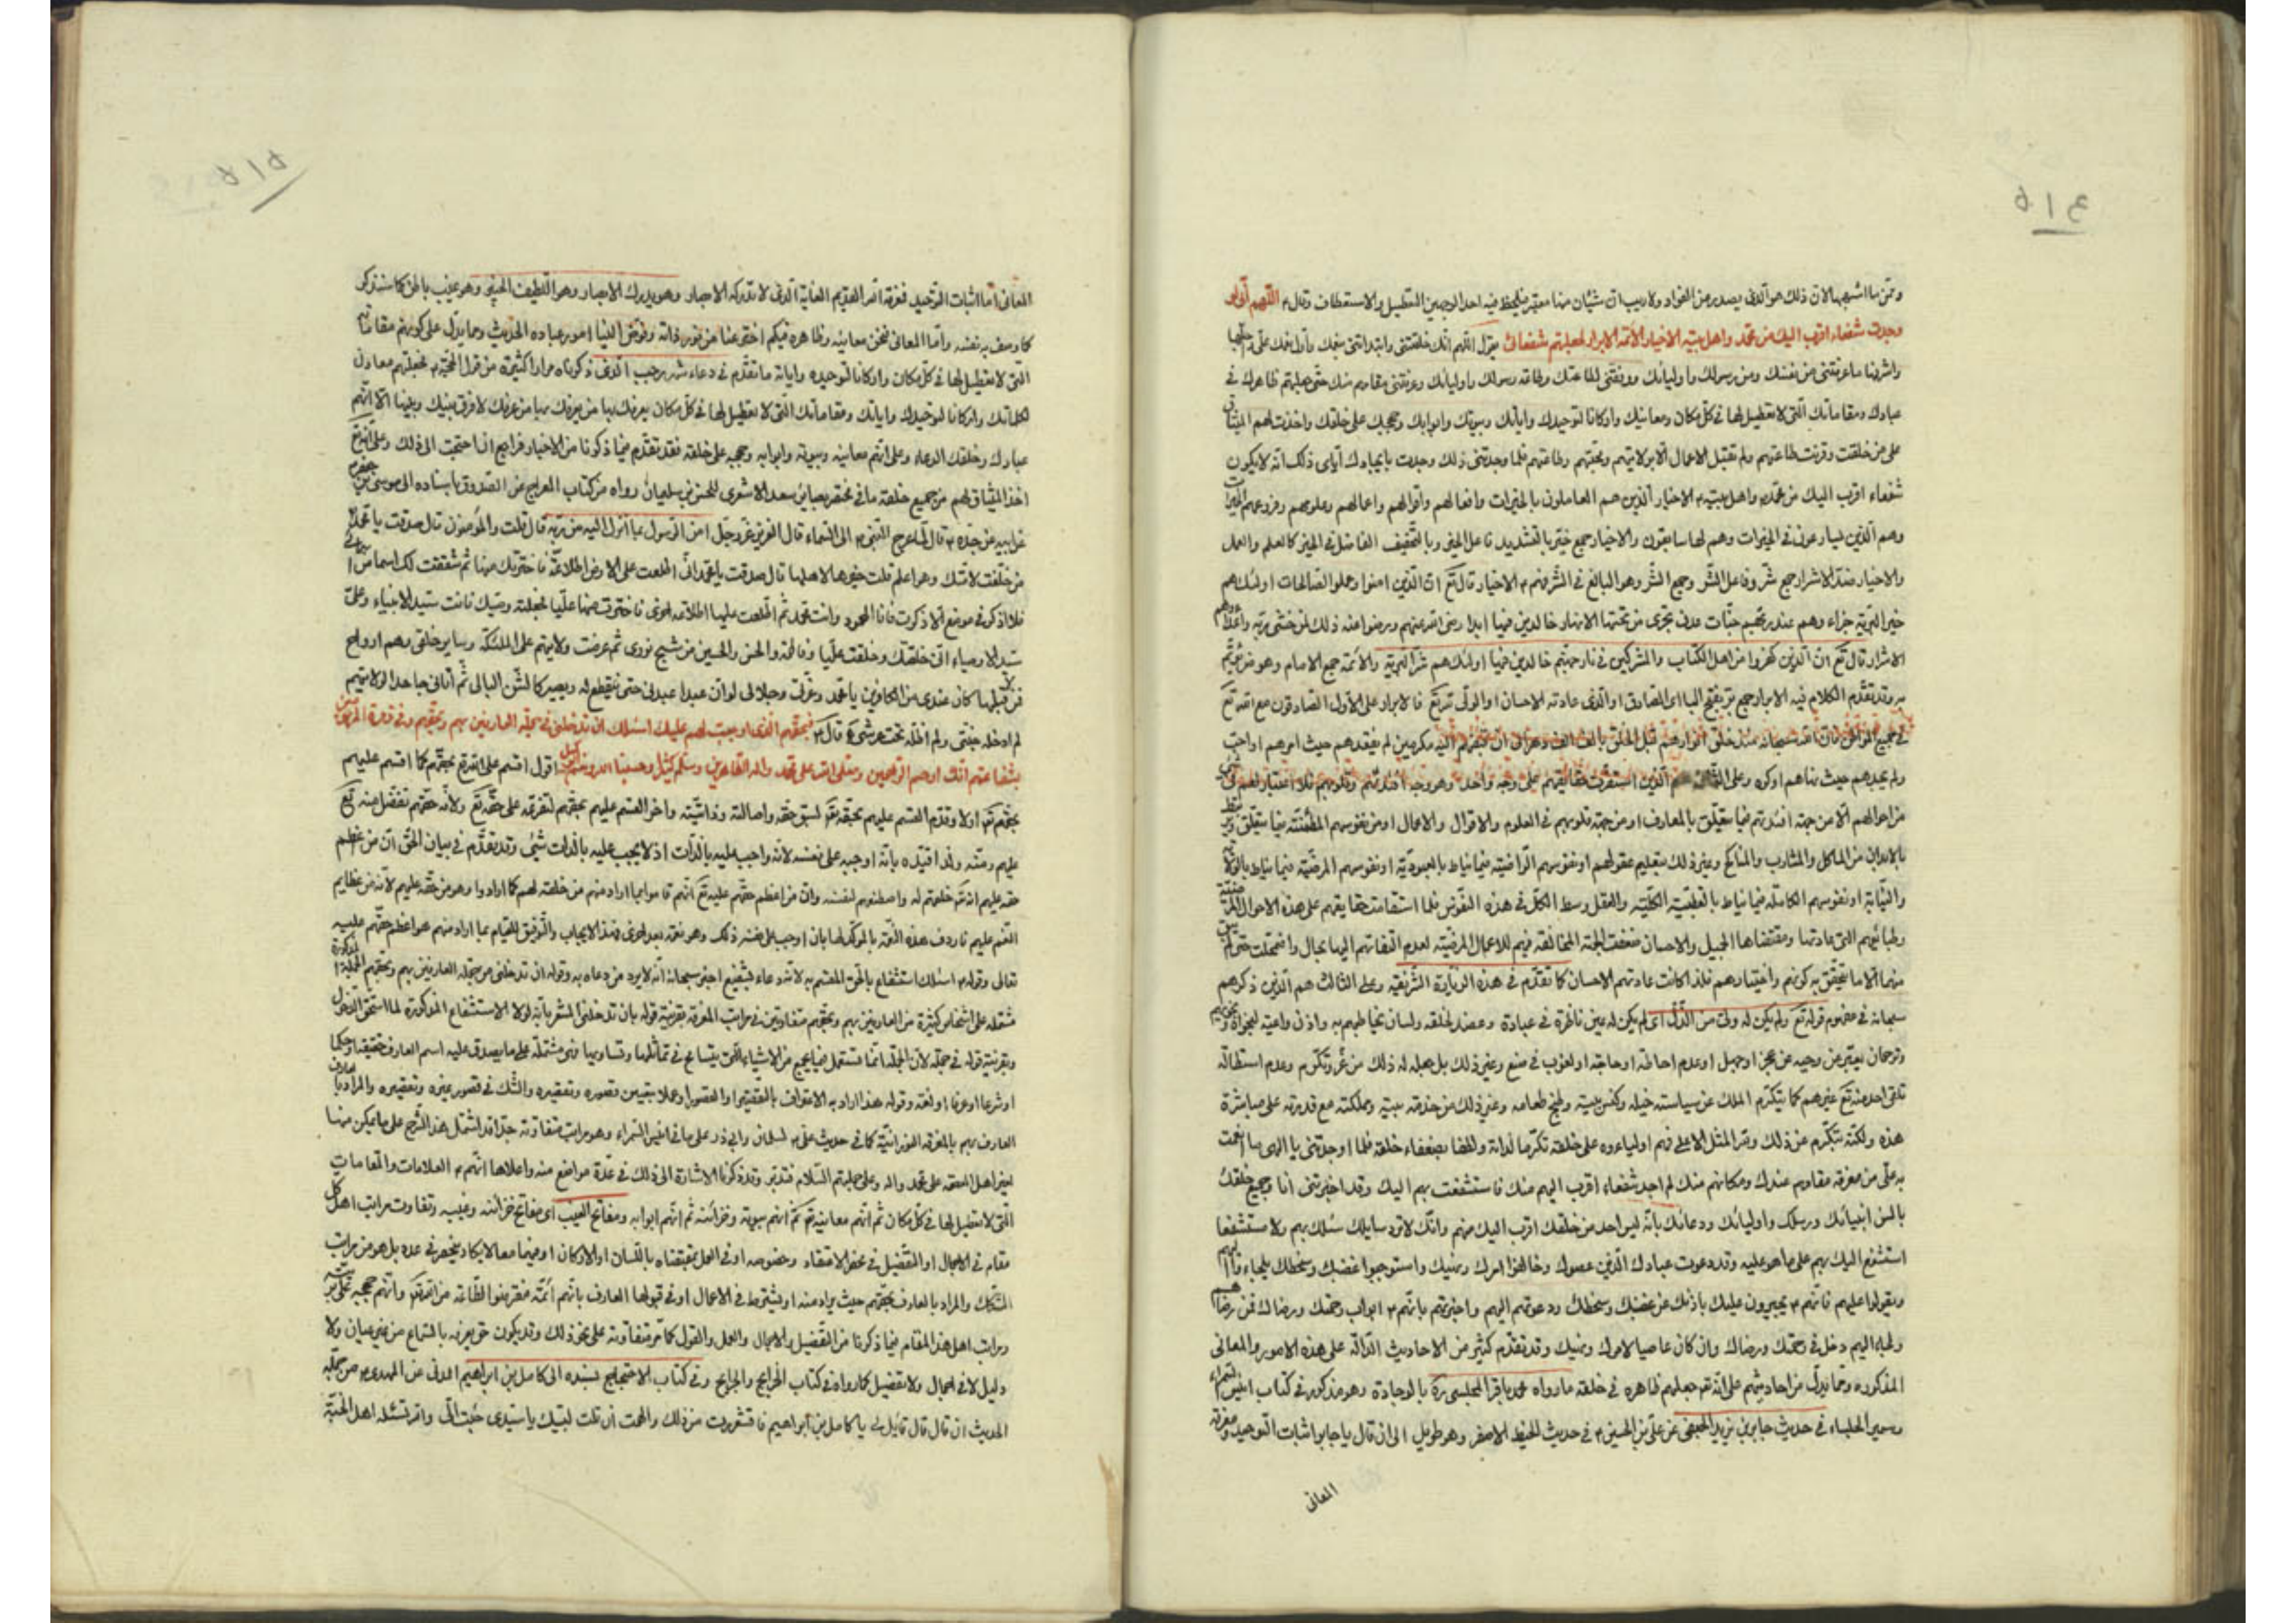 ۵۱۴
وممن ما اشبهها لان ذلك هو الذي يصدر من الفؤاد ولا ريب ان شيئان منها معتبر فيلحظ فيه احد الوجهين التعطيل والاستعطاف وقال ۴ اللهم اني لو
وجدت شفعاء اقرب اليك من محمد واهل بيته الاخيار الائمة الابرار لجعلتهم شفعائي يقول اللهم انك خلقتني وابتدأتني بنعمك وأول نعمك علي واجلها
واشرفها ما عرفتني من نفسك ومن رسولك واوليائك ووفقتني لطاعتك وطاعة رسولك واوليائك وعرفتني مقامهم منك حتى جعلتهم ظاهرك في
عبادك ومقاماتك التي لا تعطيل لها في كل مكان ومعانيك واركانا لتوحيدك واياتك وبيوتك وابوابك وحججك على خلقك واخذت لهم الميثاق
على من خلقت وقرنت طاعتهم ولم تقبل الاعمال الا بولايتهم ومحبتهم وطاعتهم فلما وجدتني ذلك وجدت بايجادك اياي ذلك انه لا يكون
شفعاء اقرب اليك من محمد واهل بيته ۴ الاخيار الذين هم العاملون بالخيرات وافعالهم واقوالهم واعمالهم وعلومهم وفروعهم الخيرات
وهم الذين يسارعون في الخيرات وهم لها سابقون والاخيار جمع خير بالتشديد فاعل الخير وبالتخفيف الفاضل في الخير كالعلم والعمل
والاخيار ضد الاشرار جمع شر وفاعل الشر وجمع الشر وهو البالغ في الشر فهم ۴ الاخيار قال تع ان الذين امنوا وعملوا الصالحات اولئك هم
خير البرية جزاءهم عند ربهم جنات عدن تجري من تحتها الانهار خالدين فيها ابدا رضي الله عنهم ورضوا عنه ذلك لمن خشي ربه واعداؤهم
الاشرار قال تع ان الذين كفروا من اهل الكتاب والمشركين في نار جهنم خالدين فيها اولئك هم شر البرية والائمة جمع الامام وهو من يؤتم
به وقد تقدم الكلام فيه الابرار جمع بر بفتح الباء اي الصادق او الذي عادته الاحسان او المولى تبرع فالابرار على الاول الصادقون مع الله تع
في جميع المواطن فان الله سبحانه منذ خلق انوارهم قبل الخلق بالف الف دهر الى ان قبضهم اليه مكرمين لم يفقدهم حيث امرهم او احب
ولم يجدهم حيث نهاهم او كره وعلى الثاني هم الذين استقرت حقايقهم على وجه واحد وهو وجه افئدتهم وقلوبهم فلا اعتبار لهم في شئ
من احوالهم الا من جهة افئدتهم فيما يتعلق بالمعارف او من جهة قلوبهم في العلوم والاقوال والاعمال او من نفوسهم المطمئنة فيما يتعلق
بالابدان من المآكل والمشارب والمناكح وغير ذلك بتعليم عقولهم او نفوسهم الراضية فيما يناط بالعبودية او نفوسهم المرضية فيما يناط بالولاية
والنيابة او نفوسهم الكاملة فيما يناط بالقطبية الكلية والعقل وسط الكل في هذه النفوس فلما استقامت حقايقهم على هذه الاحوال المرضية
وطبائعهم التي عادتها ومقتضاها الجميل والاحسان ضعفت الجهة المخالفة فيهم للاعمال المرضية لعدم التفاتهم اليها بحال واضمحلت حتى لم يبق
منها الا ما يتحقق به كونهم واختيارهم فلذا كانت عادتهم الاحسان كما تقدم في هذه الزيارة الشريفة وعلى الثالث هم الذين ذكرهم
سبحانه في مفهوم قوله تع ولم يكن له ولي من الذل اي لم يكن له عين ناظرة في عباده وعضد لخلقه ولسان يخاطبهم به واذن واعية لنجواهم
وترجمان يعبر عن وحيه عن عجز او جهل او عدم احاطة او حاجة او لغوب في صنع وغير ذلك بل جعله له ذلك من عز وتكرم وعدم استطالة
تلقي احد منه تع غيرهم كما يتكرم الملك عن سياسة خيله وكنس بيته وطبخ طعامه وغير ذلك من خدمة بيته ومملكته مع قدرته على مباشرة
هذه ولكنه يتكرم عن ذلك ولله المثل الاعلى فهم اولياءه على خلقه تكرما لذاته ولطفا بضعفاء خلقه فلما اوجدتني يا الهي ما انعمت
به علي من معرفة مقامهم عندك ومكانهم منك لم اجد شفعاء اقرب اليهم منك فاستشفعت بهم اليك وقد اخبرتني انا وجميع خلقك
بالسن انبيائك ورسلك واوليائك ودعائك بانه ليس احد من خلقك اقرب اليك منهم وانك لا ترد سايلك سئلك بهم ولا مستشفعا
استشفع اليك بهم على ما هو عليه وقد دعوت عبادك الذين عصوك وخالفوا امرك ونهيك واستوجبوا غضبك وسخطك بلجاء
ويقولوا عليهم فانهم ۴ يجيرون عليك باذنك عن غضبك وسخطك ودعوتهم اليهم واخبرتهم بانهم ۴ ابواب رحمتك ورضاك فمن رضاهم
ولجاء اليهم دخل في رحمتك ورضاك وان كان عاصيا لامرك ونهيك وقد تقدم كثير من الاحاديث الدالة على هذه الامور والمعاني
المذكورة ومما يدل من احاديثهم على انه تع جعلهم ظاهره في خلقه ما رواه محمد باقر المجلسي ره بالوجادة وهو مذكور في كتاب انيس السمراء
وسمير الجلساء في حديث جابر بن يزيد الجعفي عن علي بن الحسين ۴ في حديث الخيط الاصفر وهو طويل الى ان قال يا جابر اثبات التوحيد ومعرفة
المعاني
۵۱۵
المعاني اما اثبات التوحيد فمعرفة الله القديم الغاية الذي لا تدركه الابصار وهو يدرك الابصار وهو اللطيف الخبير وهو غيب باطن كما سنذكر
كما وصف به نفسه واما المعاني فنحن معانيه وظاهره فيكم اخترعنا من نور ذاته وفوض الينا امور عباده الحديث ومما يدل على كونهم مقاماته
التي لا تعطيل لها في كل مكان واركانا لتوحيده واياته ما تقدم في دعاء شهر رجب الذي ذكرناه مرارا كثيرة من قول الحجة ۴ فجعلتهم معادن
لكلماتك واركانا لتوحيدك واياتك ومقاماتك التي لا تعطيل لها في كل مكان يعرفك بها من عرفك لا فرق بينك وبينها الا انهم
عبادك وخلقك الدعاء وعلى انهم معانيه وبيوته وابوابه وحججه على خلقه فقد تقدم فيما ذكرنا من الاخبار فراجع ان احتجت الى ذلك وعلى انه تع
اخذ الميثاق لهم من جميع خلقه ما في مختصر بصائر سعد الاشعري للحسن بن سليمان رواه من كتاب المعراج عن الصدوق باسناده الى موسى بن جعفر ۴
عن ابيه عن جده ۴ قال لما عرج بالنبي ۴ الى السماء قال العزيز عز وجل امن الرسول بما انزل اليه من ربه قال قلت والمؤمنون قال صدقت يا محمد
من خلفت لامتك وهو اعلم قلت خيرها لاهلها قال صدقت يا محمد اني اطلعت على الارض اطلاعة فاخترتك منها ثم شققت لك اسما من اسمائي
فلا اذكر في موضع الا ذكرت فانا المحمود وانت محمد ثم اطلعت عليها اطلاعة اخرى فاخترت منها عليا فجعلته وصيك فانت سيد الانبياء وعلي
سيد الاوصياء اني خلقتك وخلقت عليا وفاطمة والحسن والحسين من شبح نوري ثم عرضت ولايتهم على الملئكة وساير خلقي وهم ارواح
فمن قبلها كان عندي من المقربين يا محمد وعزتي وجلالي لو ان عبدا عبدني حتى ينقطع له ويصير كالشن البالي ثم أتاني جاحدا لولايتهم
لم ادخله جنتي ولم اظله تحت عرشي قال ۴ فبحقهم الذي اوجبت لهم عليك اسئلك ان تدخلني في جملة العارفين بهم وبحقهم وفي زمرة المرحومين
بشفاعتهم انك ارحم الراحمين وصلى الله على محمد واله الطاهرين وسلم كثيرا وحسبنا الله ونعم الوكيل اقول اقسم على الله تع بحقهم كما اقسم عليهم
بحقه تع اولا وقدم القسم عليهم بحقه تع لسبق حقه واصالته وذاتيته واخر القسم عليهم بحقهم لتفرعه على حقه تع ولانه حقهم تفضل منه تع
عليهم ومنه ولذا قيده بانه اوجبه على نفسه لانه واجب عليه بالذات اذ لا يجب عليه بالذات شئ وقد تقدم في بيان الحق ان من عظم
حقه عليهم انه تع خلقهم له واصطنعهم لنفسه وان من اعظم حقهم عليه تع انهم قاموا بما اراد منهم من خلقه لهم كما ارادوا وهو من حقه عليهم لانه من عظايم
النعم عليهم فاردف هذه النعمة بالموكد لها بان اوجب على نفسه ذلك وهو نعمة بعد اخرى فهذا الايجاب والتوفيق للقيام بما اراد منهم هو اعظم حقهم عليه
تعالى وقوله ۴ اسئلك استشفاع بالحق المقسم به لانه دعاء بشفيع اخبر سبحانه انه لا يرد من دعاه به وقوله ان تدخلني من جملة العارفين بهم وبحقهم الجملة المذكورة
مشتملة على اشخاص كثيرة من العارفين بهم وبحقهم متفاوتين في مراتب المعرفة بقرينة قوله بان تدخلني المشعر بانه لولا الاستشفاع المذكورة لما استحق الدخول
وبقرينة قوله في جملة لان الجملة انما تستعمل فيما يجمع من الاشياء التي يتسامح في تماثلها وتساويها فهي مشتملة على ما يصدق عليه اسم العارف حقيقة او حكما
او شرعا او عرفا او لغة وقوله هذا اراد به الاعتراف بالتقصير او القصور او عملا بتيقن قصوره وتقصيره والشك في قصور غيره وتقصيره والمراد بالعارف
العارف بهم بالمعرفة النورانية كما في حديث علي ۴ لسلمان وابي ذر على ما في انيس السمراء وهو مراتب متفاوتة جدا قد اشتمل هذا الشرح على ما يمكن منها
لغير اهل العصمة على محمد واله وعلى جملتهم السلام فتدبر وقد ذكرنا الاشارة الى ذلك في عدة مواضع منه واعلاها انهم ۴ العلامات والمقامات
التي لا تعطيل لها في كل مكان ثم انهم معانيه ثم انهم بيوته وخزائنه ثم انهم ابوابه ومفاتح الغيب اي مفاتح خزائنه وغيبه وتفاوت مراتب اهل كل
مقام في الاجمال او التفصيل في محض الاعتقاد وخصوصه او في العمل بمقتضاه باللسان او الاركان او فيهما معا لا يكاد ينحصر في عدد بل هو من مراتب
المشكك والمراد بالعارف بحقهم حيث يراد منه او يشترط في الاعمال او في قبولها العارف بانهم ائمة مفترضوا الطاعة من الله تع وانهم حججه على بريته
ومراتب اهل هذا المقام فيما ذكرنا من التفصيل والاجمال والعمل والقول كما مر متفاوتة على نحو ذلك وقد يكون حق يعرفه بالسماع من غير عيان ولا
دليل لا في اجمال ولا تفصيل كما رواه في كتاب الخرايج والجرايح وفي كتاب الاحتجاج بسنده الى كامل بن ابراهيم المدني عن المهدي ۴ من جملة
الحديث ان قال قال قائل لي يا كامل بن ابراهيم فاقشعررت من ذلك والهمت ان قلت لبيك يا سيدي جئت الى ولي الله تسئله اهل الجنة